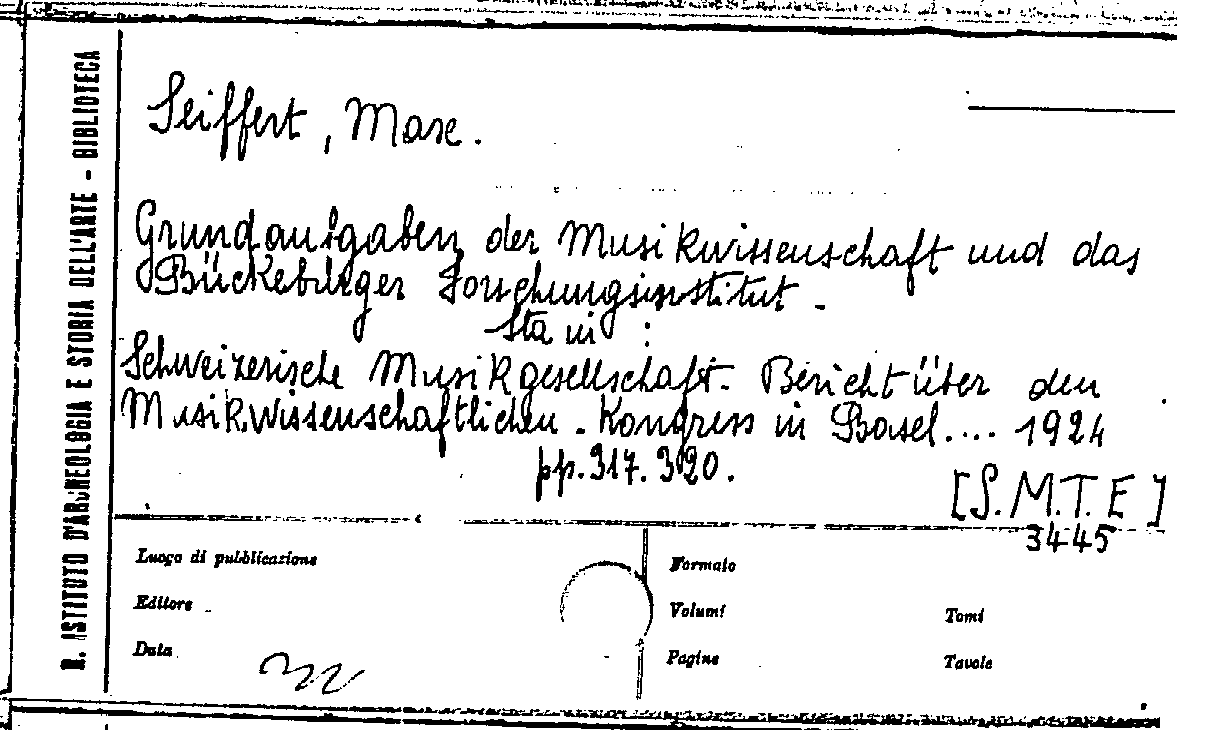 R. ISTITUTO D'ARCHEOLOGIA E STORIA DELL'ARTE - BIBLIOTECA
Seiffert, Max.
Grundaufgaben der Musikwissenschaft und das
Bückeburger Forschungsinstitut.
Sta in :
Schweizerische Musikgesellschaft. Bericht über den
Musikwissenschaftlichen. Kongress in Basel.... 1924
pp. 317. 320.
[S.M.T.E]
3445
Luogo di pubblicazione
Formato
Editore
Volumi
Tomi
Data
Pagine
Tavole